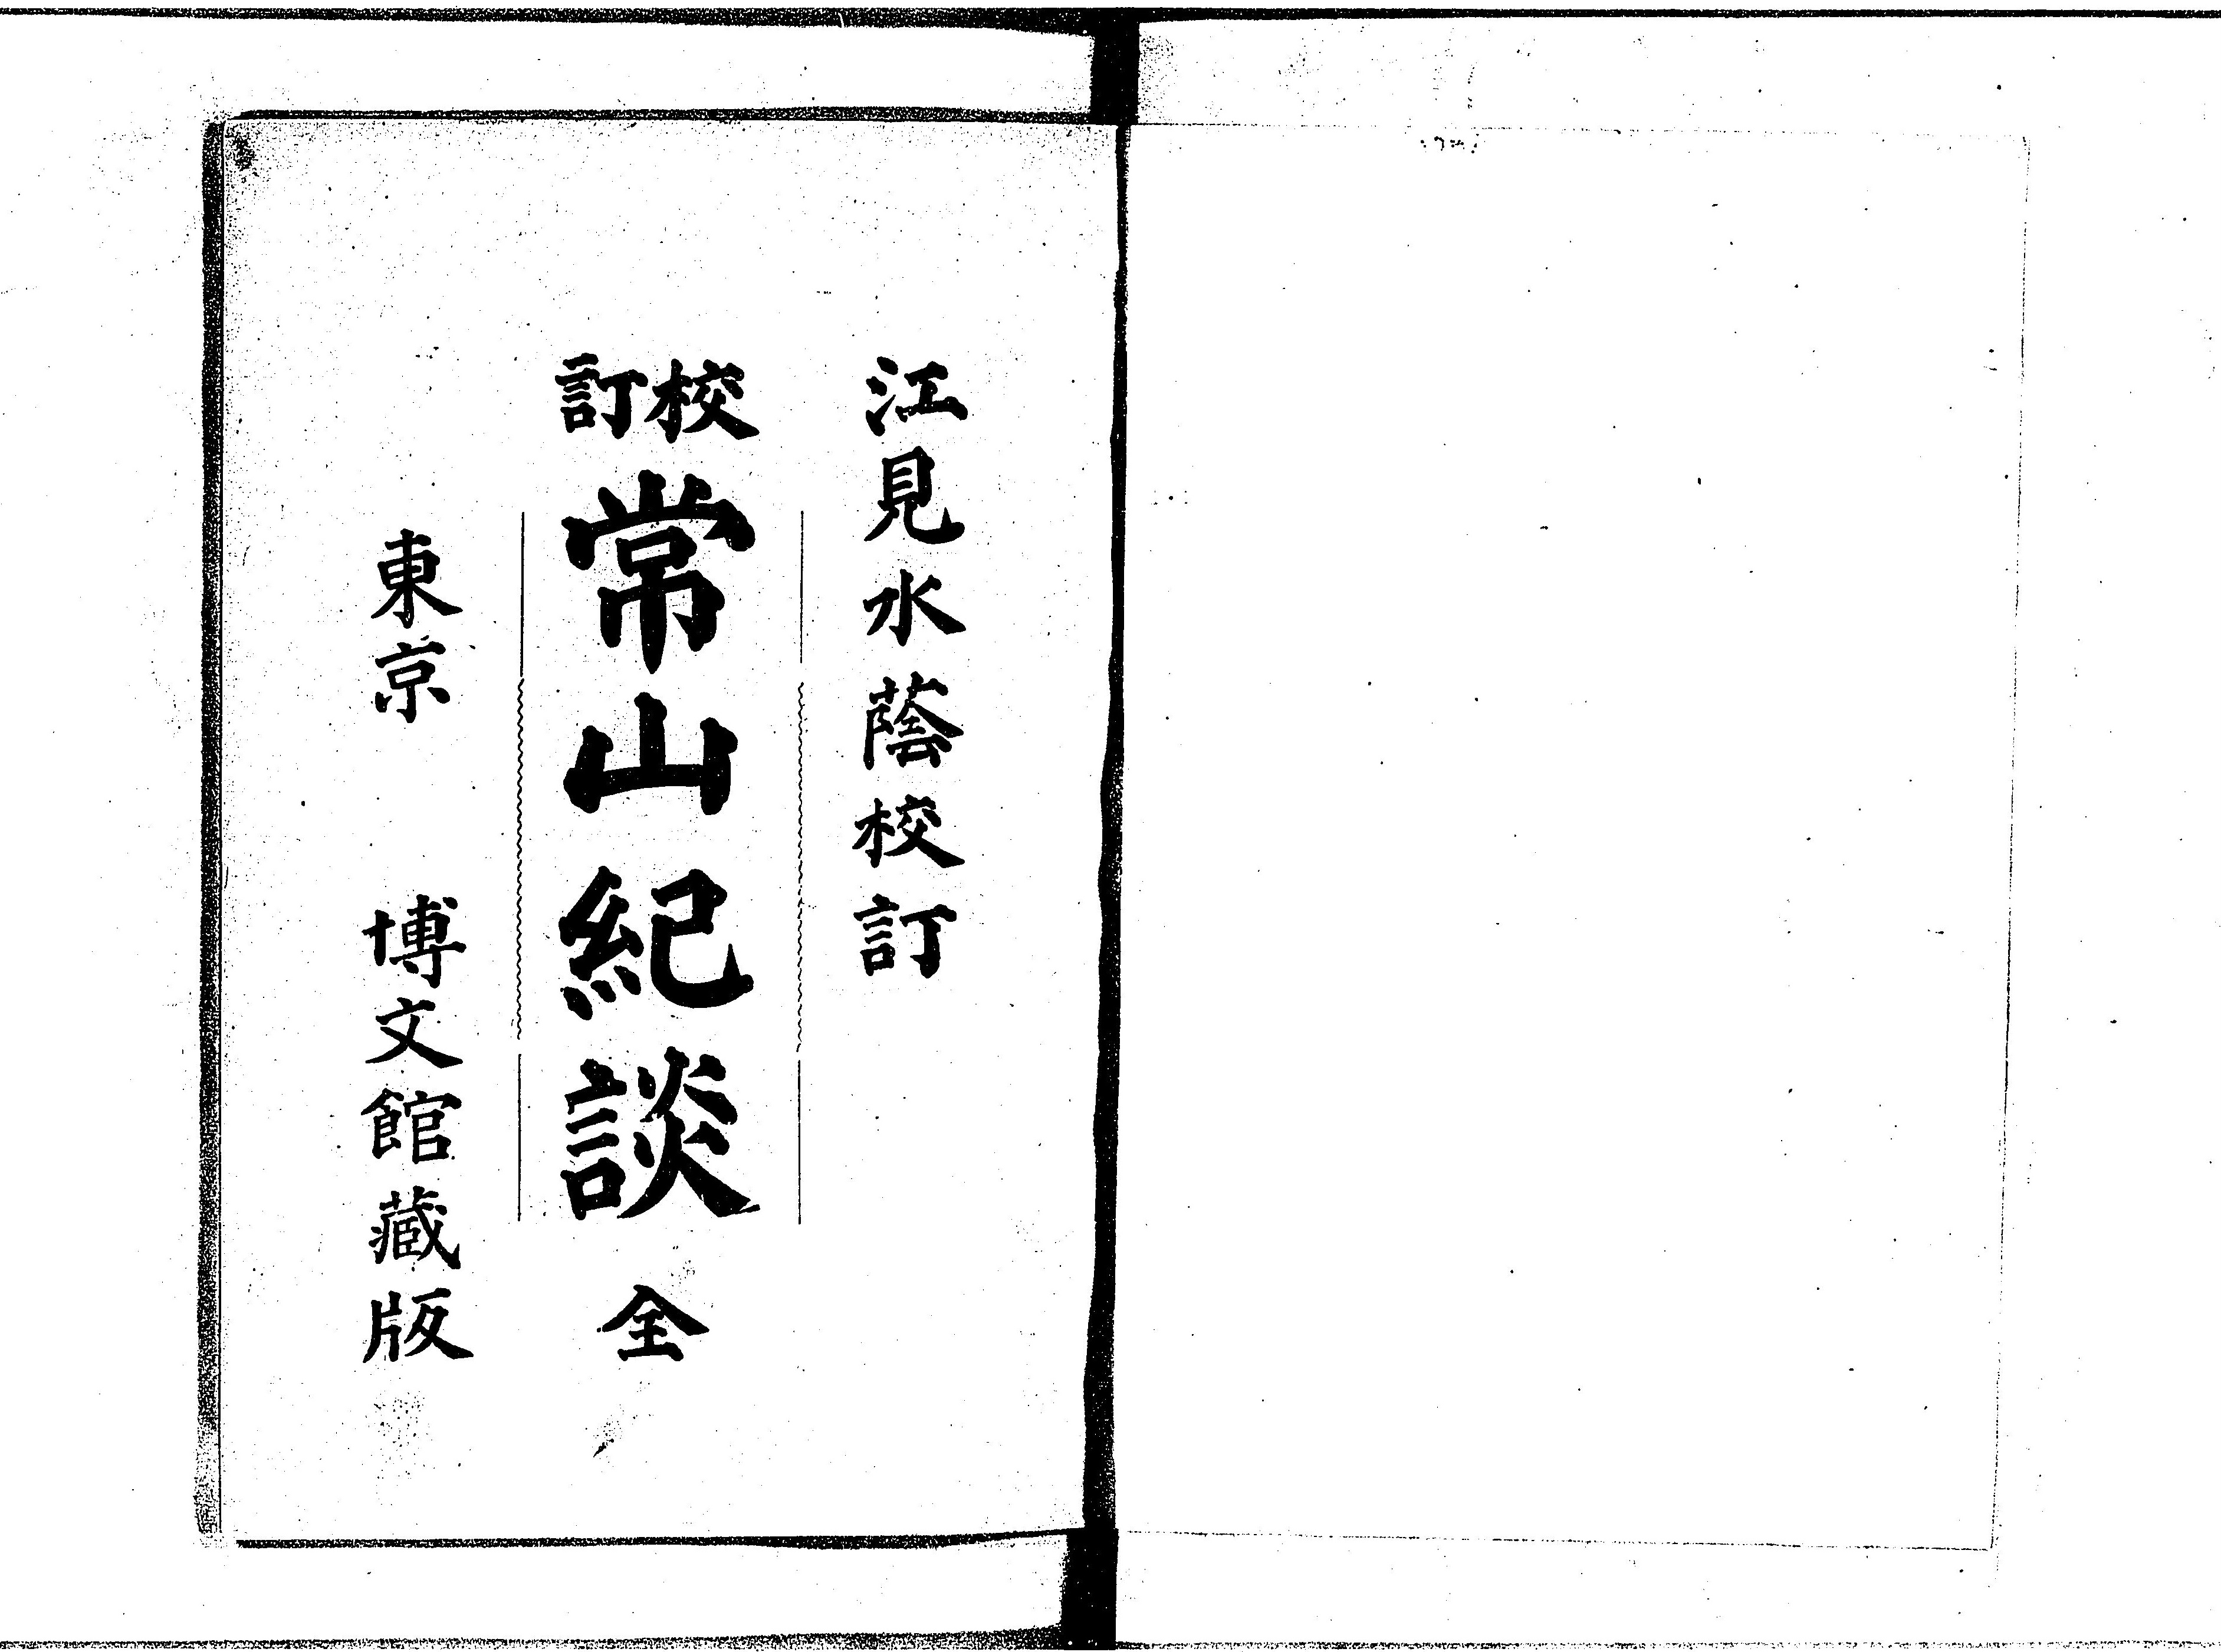 江見水蔭校訂
校訂 常山紀談 全
東京 博文館藏版